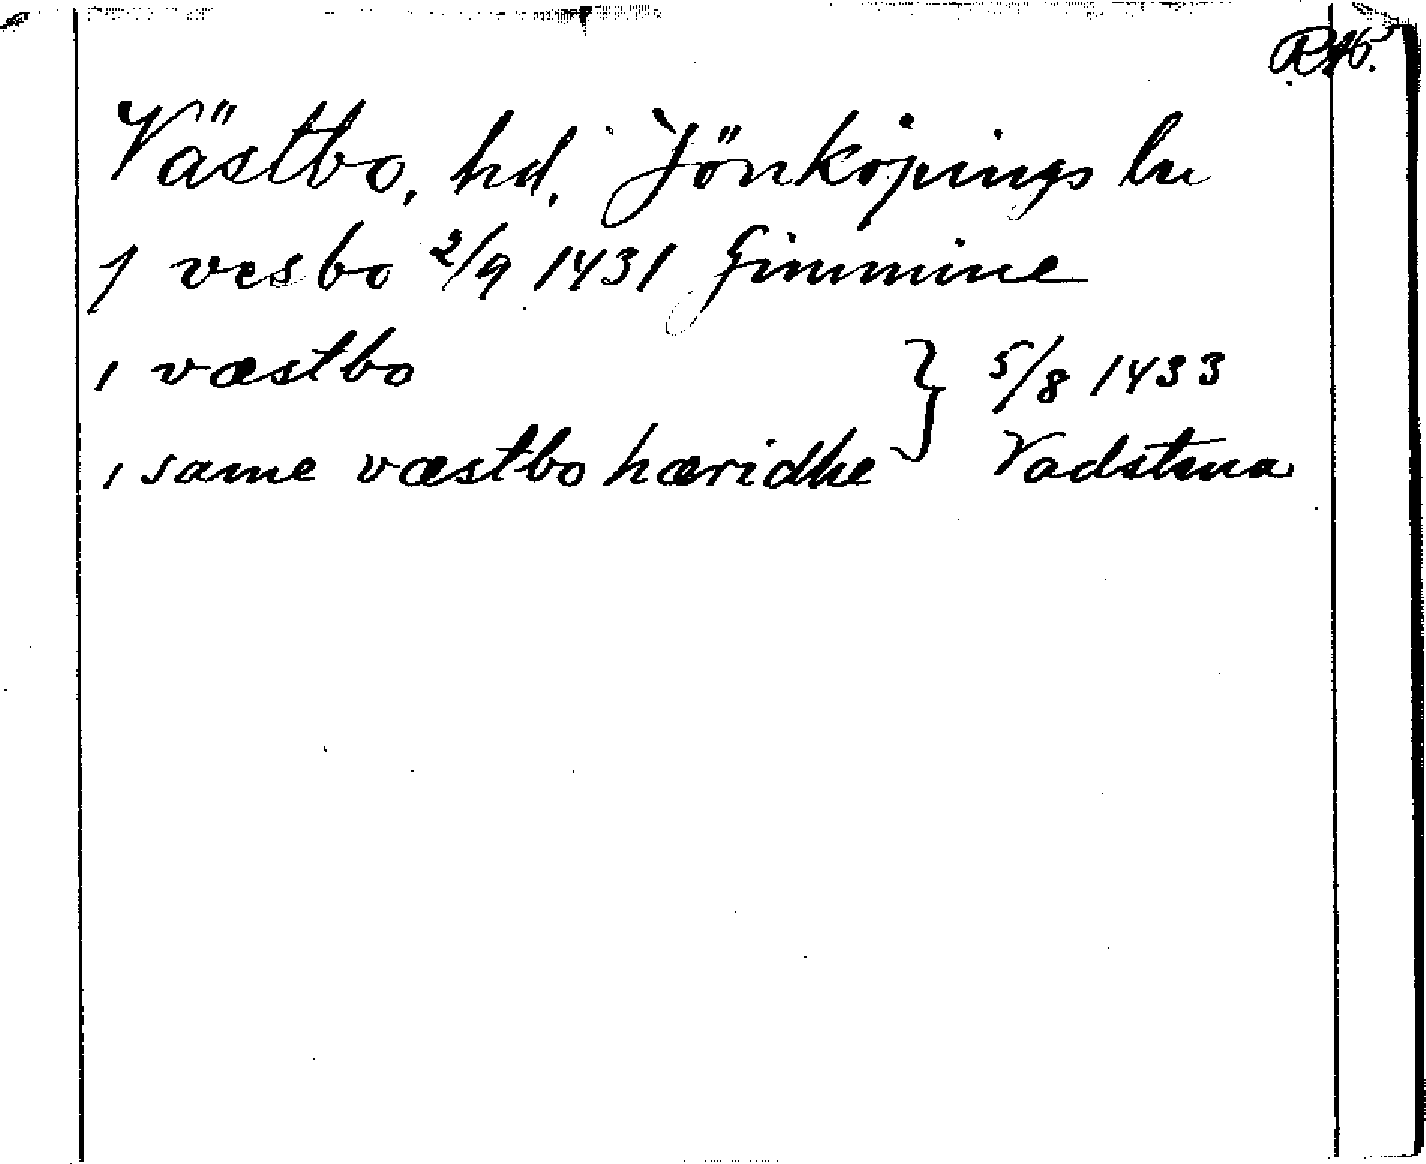 RAP.
Västbo, hd. Jönköpings län
j vesbo 2/9 1431 Gimmine
i væstbo } 5/8 1433
i same væstbo hæridhe } Vadstena